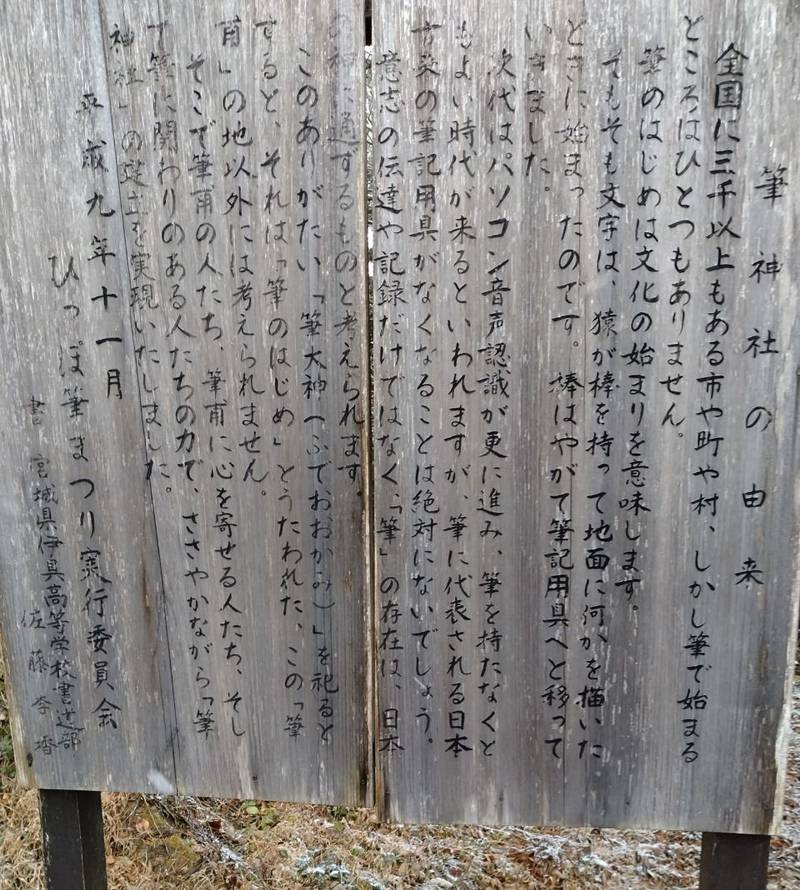 筆神社の由来
全国に三千以上もある市や町や村、しかし筆で始まる
ところはひとつもありません。
筆のはじめは文化の始まりを意味します。
そもそも文字は、猿が棒を持って地面に何かを描いた
ときに始まったのです。棒はやがて筆記用具へと移って
いきました。
次代はパソコン音声認識が更に進み、筆を持たなくと
もよい時代が来るといわれますが、筆に代表される日本
古来の筆記用具がなくなることは絶対にないでしょう。
意志の伝達や記録だけではなく「筆」の存在は、日本
の神に通ずるものと考えられます。
このありがたい「筆大神(ふでおおかみ)」を祀ると
すると、それは「筆のはじめ」とうたわれた、この「筆
甫」の地以外には考えられません。
そこで筆甫の人たち、筆甫に心を寄せる人たち、そし
て筆に関わりのある人たちの力で、ささやかながら「筆
神社」の建立を実現いたしました。
平成九年十一月
ひっぽ筆まつり実行委員会
書 宮城県伊具高等学校書道部
佐藤李香